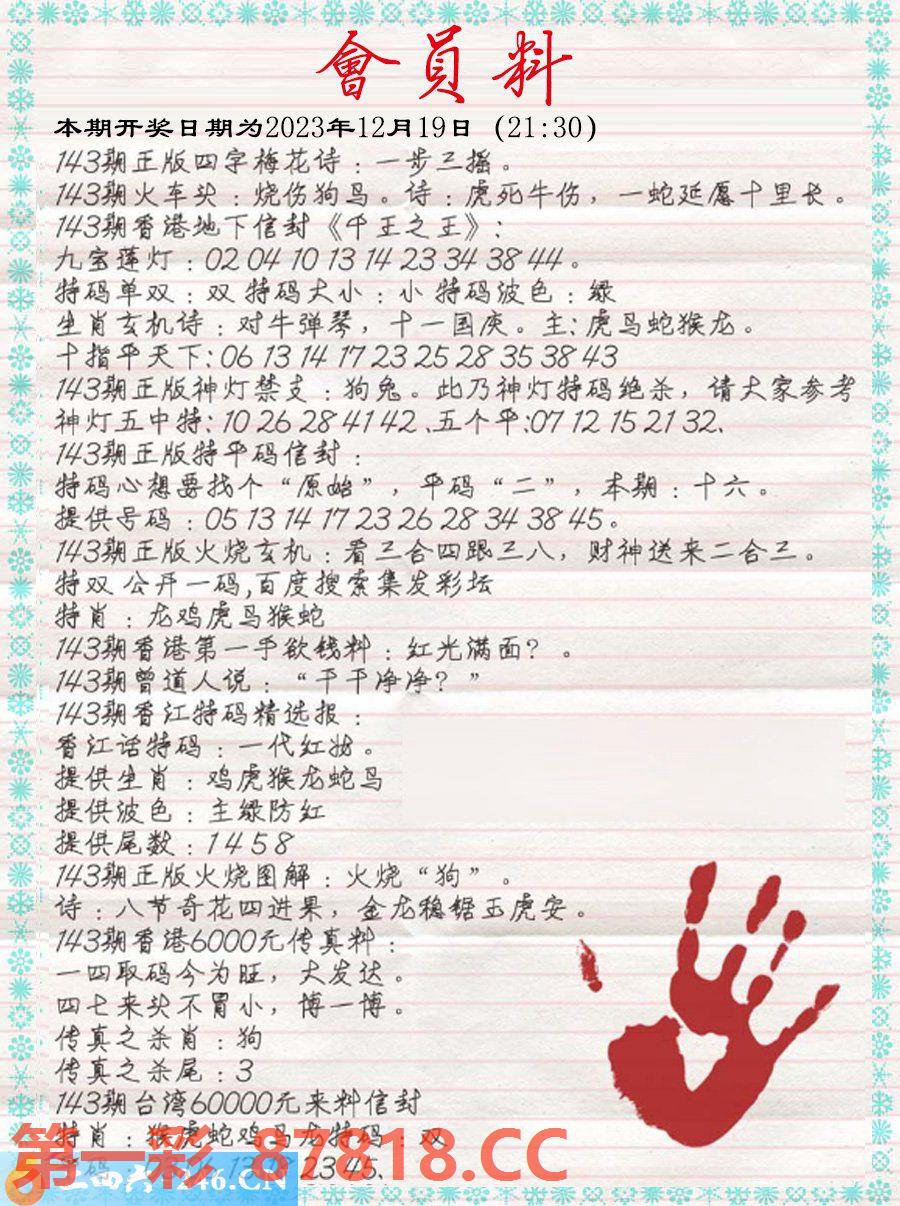 會員料
本期开奖日期为2023年12月19日（21:30）
143期正版四字梅花诗：一步三摇。
143期火车头：烧伤狗鸟。诗：虎死牛伤，一蛇延愿十里长。
143期香港地下信封《千王之王》：
九宝莲灯：02 04 10 13 14 23 34 38 44。
特码单双：双 特码大小：小 特码波色：绿
生肖玄机诗：对牛弹琴，十一国庆。主：虎马蛇猴龙。
十指平天下：06 13 14 17 23 25 28 35 38 43
143期正版神灯禁支：狗兔。此乃神灯特码绝杀，请大家参考
神灯五中特：10 26 28 41 42、五个平：07 12 15 21 32、
143期正版特平码信封：
特码心想要找个“原始”，平码“二”，本期：十六。
提供号码：05 13 14 17 23 26 28 34 38 45。
143期正版火烧玄机：看三合四跟三八，财神送来二合三。
特双 公开一码,百度搜索集发彩坛
特肖：龙鸡虎马猴蛇
143期香港第一手欲钱料：红光满面？。
143期曾道人说：“干干净净？”
143期香江特码精选报：
香江话特码：一代红妆。
提供生肖：鸡虎猴龙蛇马
提供波色：主绿防红
提供尾数：1 4 5 8
143期正版火烧图解：火烧“狗”。
诗：八节奇花四进果，金龙稳锯玉虎安。
143期香港6000元传真料：
一四取码今为旺，大发达。
四七来头不冒小，博一博。
传真之杀肖：狗
传真之杀尾：3
143期台湾60000元来料信封
特肖：猴虎蛇鸡马龙特码：双
13 18 23 45、
第一彩 87818.CC
二四六 246.CN